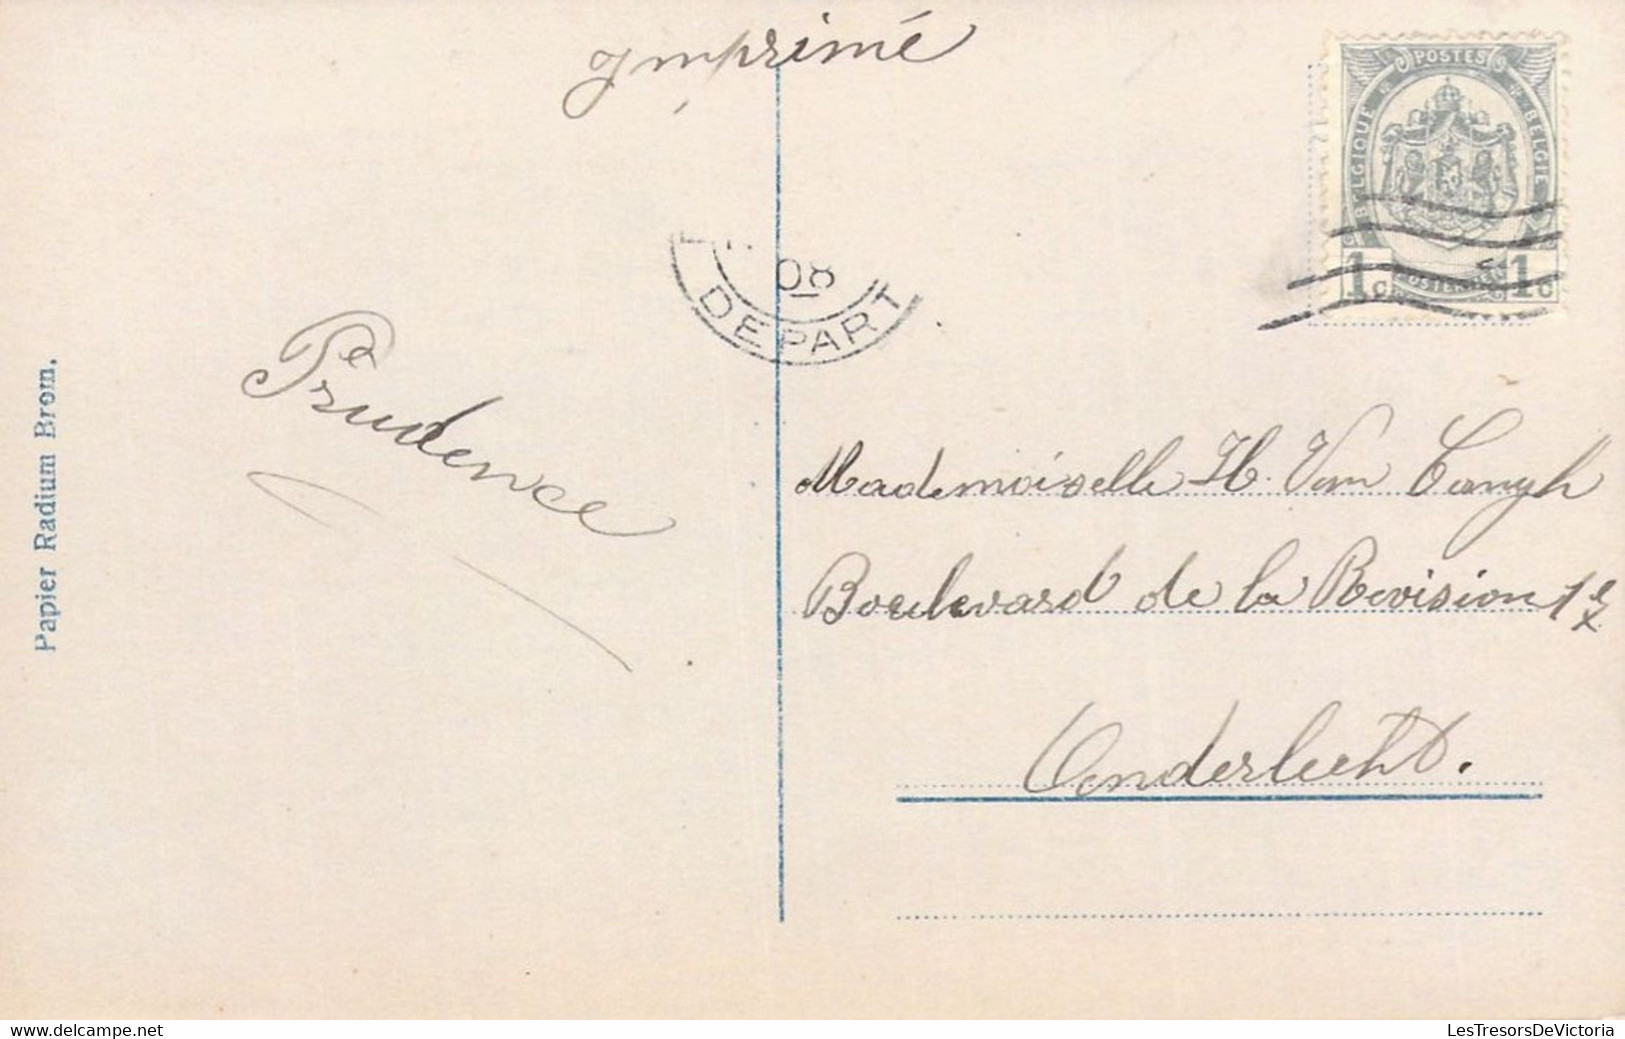 Imprimé
POSTES
BELGIQUE
BELGIE
1c
1c
08
DEPART
Prudence
Papier Radium Brom.
Mademoiselle H. Van Cangh
Boulevard de la Revision
Anderlecht.
delcampe.net
LesTresorsDeVictoria